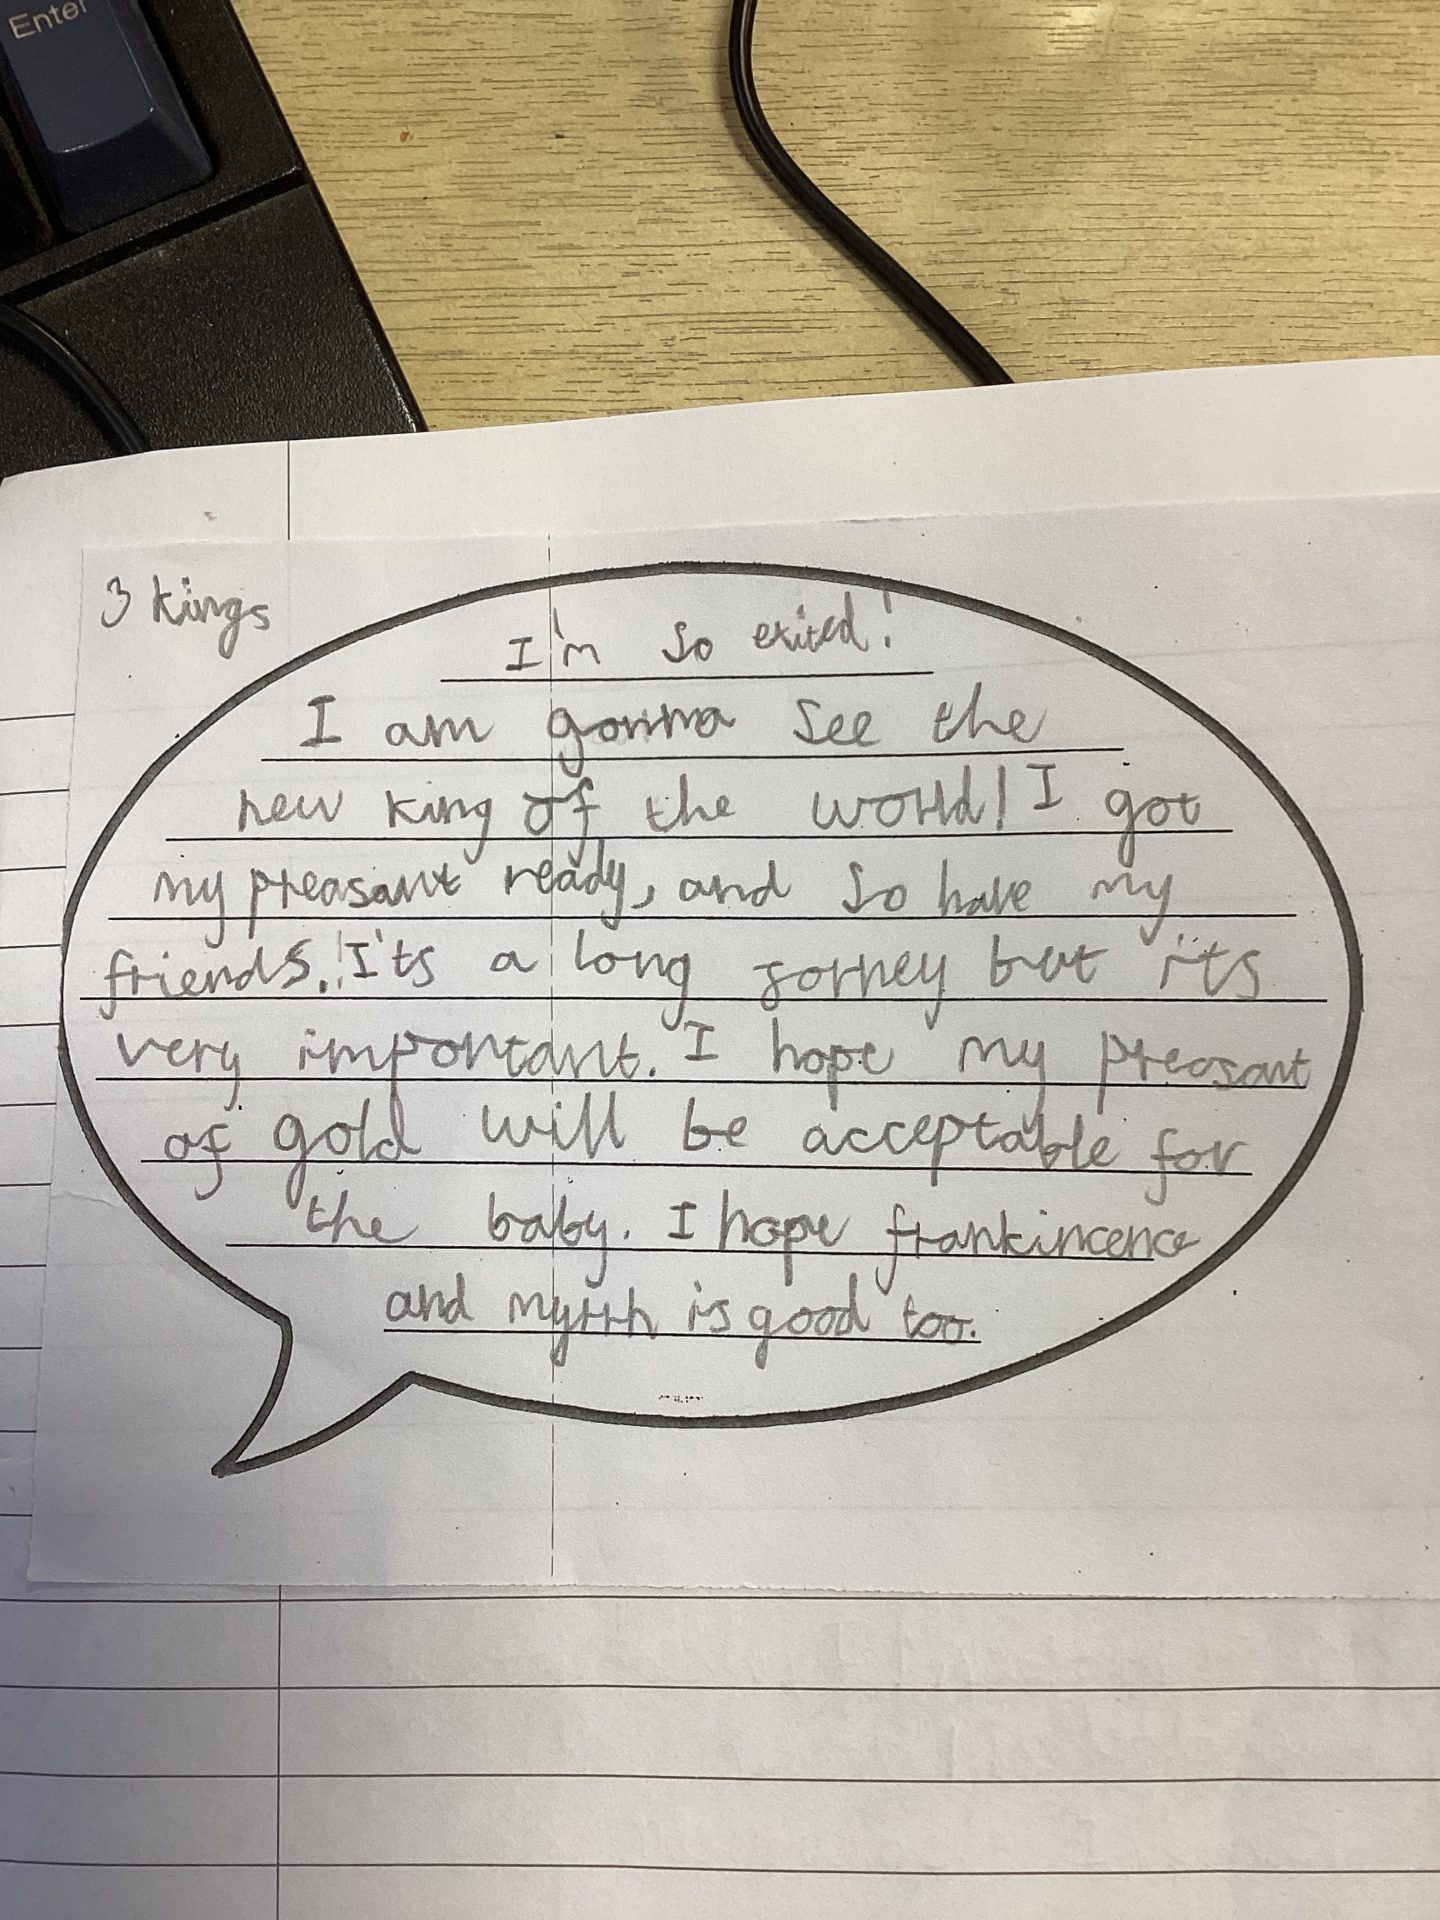 Enter
3 kings
I'm so exited!
I am gonna see the
new king of the world! I got
my preasant ready, and so have my
friends. I'ts a long jorney but it's
very important. I hope my preasant
of gold will be acceptable for
the baby. I hope frankincence
and myrrh is good too.